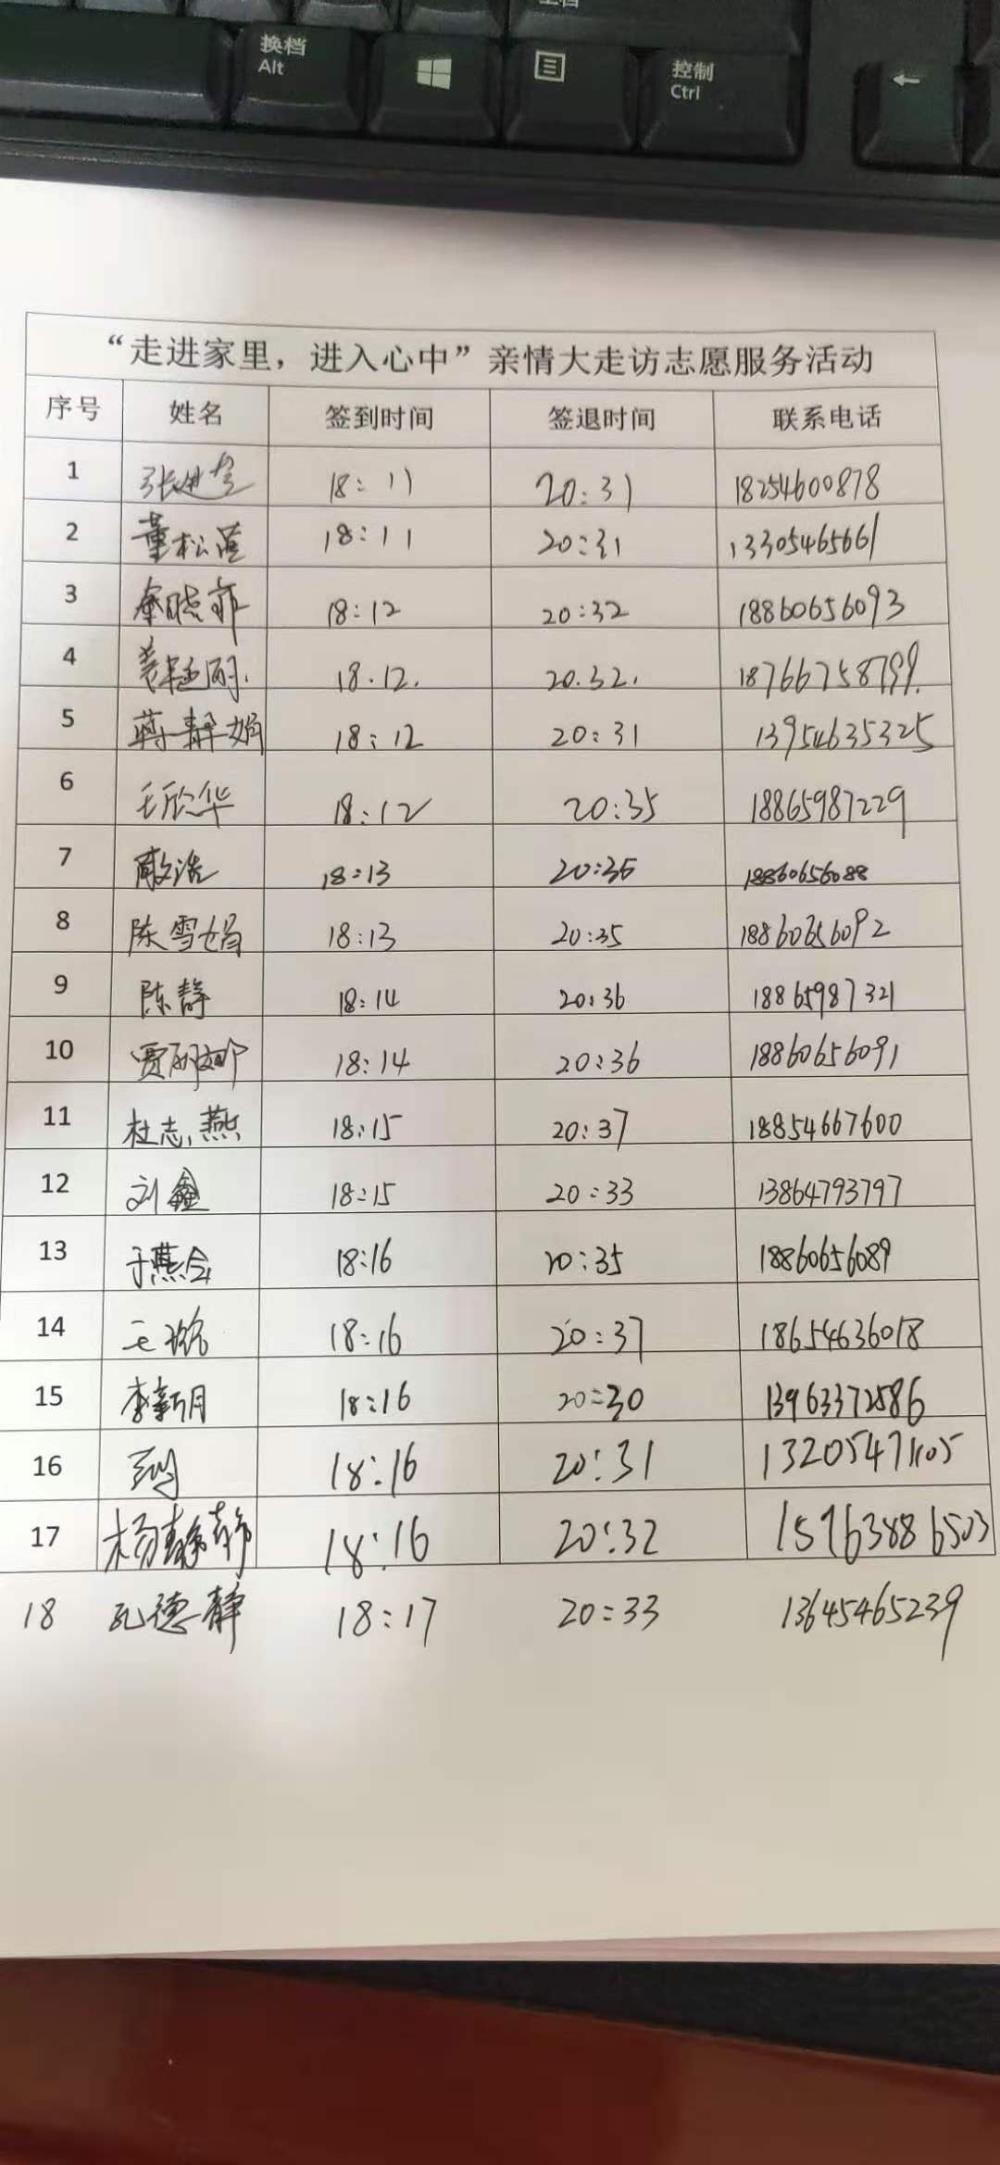 换档
Alt
控制
Ctrl
“走进家里，进入心中”亲情大走访志愿服务活动
序号 姓名 签到时间 签退时间 联系电话
1 18:11 20:31 18254600878
2 董松 18:11 20:31 13305465661
3 秦晓菲 18:12 20:32 18860656093
4 姜 丽 18.12. 20.32. 18766758799
5 蒋静娟 18:12 20:31 13954635325
6 王欣华 18:12 20:35 18865987229
7 浩 18:13 20:36 18860656088
8 陈雪娟 18:13 20:35 18860656092
9 陈静 18:14 20:36 18865987321
10 贾丽娜 18:14 20:36 18860656091
11 杜志燕 18:15 20:37 18854667600
12 刘鑫 18:15 20:33 13864793797
13 于燕会 18:16 20:35 18860656089
14 王 18:16 20:37 18654636018
15 李新月 18:16 20:30 13963372586
16 18:16 20:31 13205471105
17 杨静静 18:16 20:32 15963886503
18 孔德静 18:17 20:33 13645465239